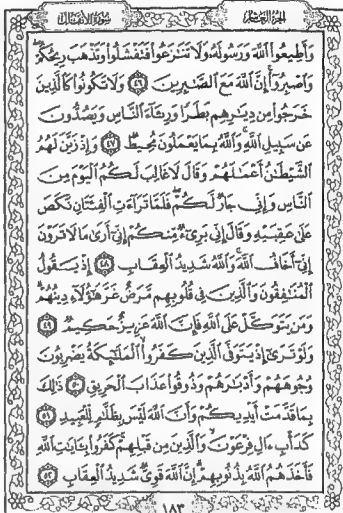 سورة الأنفال الجزء العاشر
وَأَطِيعُوا۟ ٱللَّهَ وَرَسُولَهُۥ وَلَا تَنَٰزَعُوا۟ فَتَفْشَلُوا۟ وَتَذْهَبَ رِيحُكُمْ ۖ
وَٱصْبِرُوٓا۟ ۚ إِنَّ ٱللَّهَ مَعَ ٱلصَّٰبِرِينَ ٤٦ وَلَا تَكُونُوا۟ كَٱلَّذِينَ
خَرَجُوا۟ مِن دِيَٰرِهِم بَطَرًا وَرِئَآءَ ٱلنَّاسِ وَيَصُدُّونَ
عَن سَبِيلِ ٱللَّهِ ۚ وَٱللَّهُ بِمَا يَعْمَلُونَ مُحِيطٌ ٤٧ وَإِذْ زَيَّنَ لَهُمُ
ٱلشَّيْطَٰنُ أَعْمَٰلَهُمْ وَقَالَ لَا غَالِبَ لَكُمُ ٱلْيَوْمَ مِنَ
ٱلنَّاسِ وَإِنِّى جَارٌ لَّكُمْ ۖ فَلَمَّا تَرَآءَتِ ٱلْفِئَتَانِ نَكَصَ
عَلَىٰ عَقِبَيْهِ وَقَالَ إِنِّى بَرِىٓءٌ مِّنكُمْ إِنِّىٓ أَرَىٰ مَا لَا تَرَوْنَ
إِنِّىٓ أَخَافُ ٱللَّهَ ۚ وَٱللَّهُ شَدِيدُ ٱلْعِقَابِ ٤٨ إِذْ يَقُولُ
ٱلْمُنَٰفِقُونَ وَٱلَّذِينَ فِى قُلُوبِهِم مَّرَضٌ غَرَّ هَٰٓؤُلَآءِ دِينُهُمْ ۗ
وَمَن يَتَوَكَّلْ عَلَى ٱللَّهِ فَإِنَّ ٱللَّهَ عَزِيزٌ حَكِيمٌ ٤٩
وَلَوْ تَرَىٰٓ إِذْ يَتَوَفَّى ٱلَّذِينَ كَفَرُوا۟ ۙ ٱلْمَلَٰٓئِكَةُ يَضْرِبُونَ
وُجُوهَهُمْ وَأَدْبَٰرَهُمْ وَذُوقُوا۟ عَذَابَ ٱلْحَرِيقِ ٥٠ ذَٰلِكَ
بِمَا قَدَّمَتْ أَيْدِيكُمْ وَأَنَّ ٱللَّهَ لَيْسَ بِظَلَّٰمٍ لِّلْعَبِيدِ ٥١
كَدَأْبِ ءَالِ فِرْعَوْنَ ۙ وَٱلَّذِينَ مِن قَبْلِهِمْ ۚ كَفَرُوا۟ بِـَٔايَٰتِ ٱللَّهِ
فَأَخَذَهُمُ ٱللَّهُ بِذُنُوبِهِمْ ۗ إِنَّ ٱللَّهَ قَوِىٌّ شَدِيدُ ٱلْعِقَابِ ٥٢
١٨٣